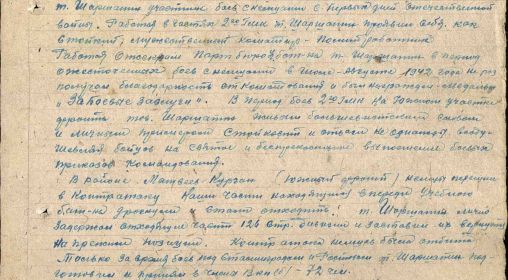 т. Шаршатин участник боев с немцами с первых дней отечественной
войны. Работая в частях 2ой Гв. т. Шаршатин проявил себя, как
стойкий, мужественный командир - Политработник.
Работая Отсекром Парт бюро т. Шаршатин в период
ожесточенных боев с немцами в Июле - Августе 1942 года не раз
получал благодарность от командования и был награжден - медалью
"За боевые заслуги". В период боев 2ой Гв. на Южном участке
фронта тов. Шаршатин большевистским словом
и личным примером стойкости и отваги не однократно вооду-
шевлял бойцов на святое и беспрекословное выполнение боевых
приказов командования.
В районе Матвеев Курган (Южный фронт) немцы перешли
в Контратаку Наши части находящиеся впереди Учебного
бат-на дрогнули и стали отходить. т. Шаршатин лично
задержал отходящие части 126 стр. дивизии и заставил их вернуться
на прежние позиции. Контратака немцев была отбита
Только за время боев под Сталинградом и Ростовом т. Шаршатин под-
готовил и принял в члены ВКП(б) - 72 чел.